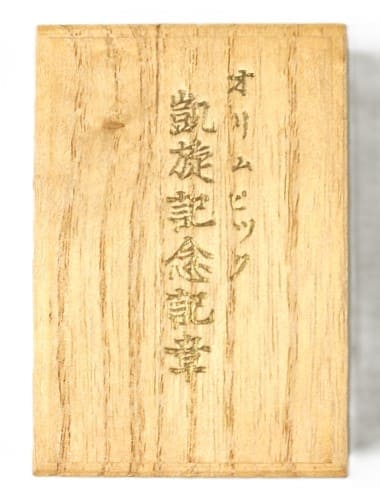 オリムピック
凱旋記念記章